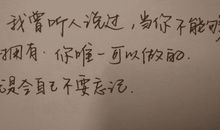 我曾听人说过，当你不能够
拥有．你唯一可以做的．
是令自己不要忘记．